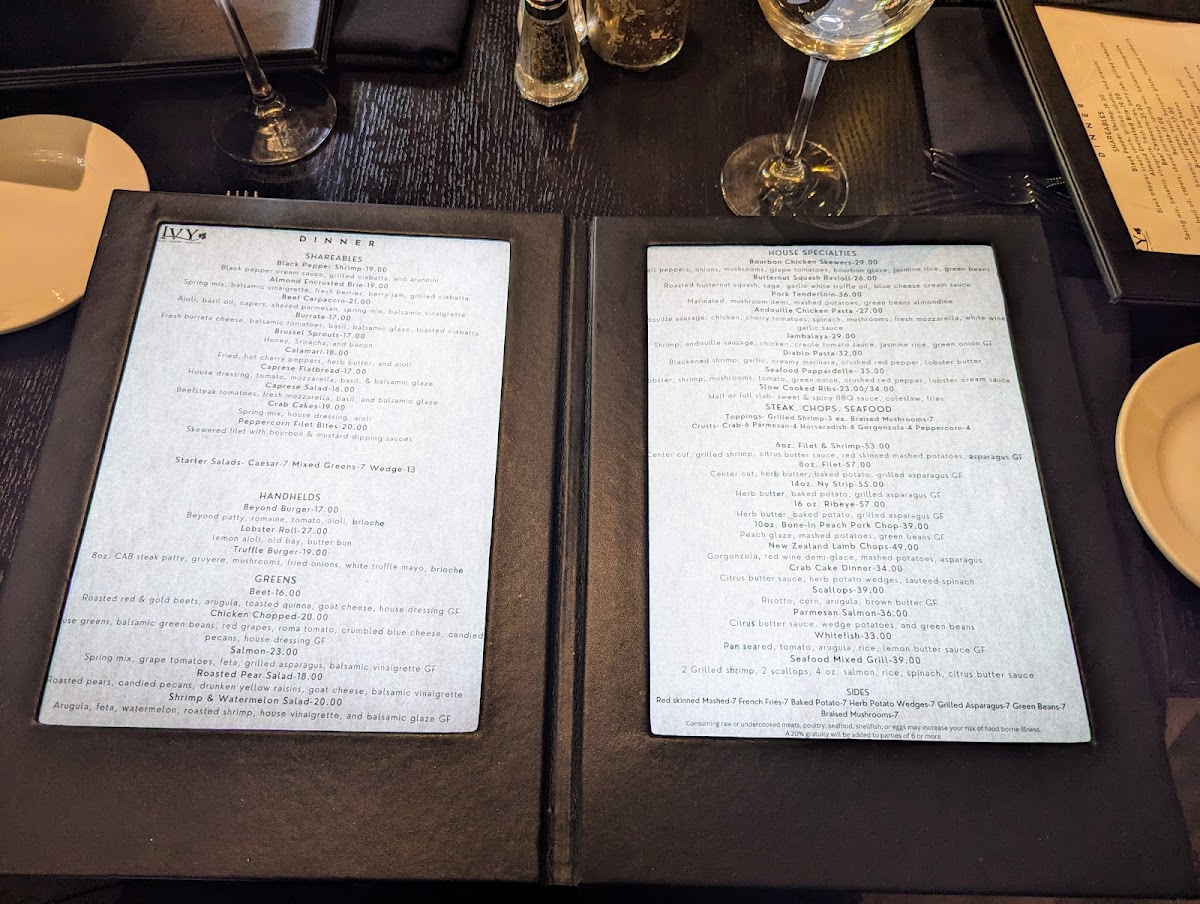 IVY
DINNER
SHAREABLES
Black Pepper Shrimp-19.00
Black pepper cream sauce, grilled ciabatta, and arancini
Almond Encrusted Brie-19.00
Spring mix, balsamic vinaigrette, fresh berries, berry jam, grilled ciabatta
Beef Carpaccio-21.00
Aioli, basil oil, capers, shaved parmesan, spring mix, balsamic vinaigrette
Burrata-17.00
Fresh burrata cheese, balsamic tomatoes, basil, balsamic glaze, toasted ciabatta
Brussel Sprouts-17.00
Honey, Sriracha, and bacon
Calamari-18.00
Fried, hot cherry peppers, herb butter, and aioli
Caprese Flatbread-17.00
House dressing, tomato, mozzarella, basil, & balsamic glaze
Caprese Salad-16.00
Beefsteak tomatoes, fresh mozzarella, basil, and balsamic glaze
Crab Cakes-19.00
Spring mix, house dressing, aioli
Peppercorn Filet Bites-20.00
Skewered filet with bourbon & mustard dipping sauces
Starter Salads- Caesar-7 Mixed Greens-7 Wedge-13
HANDHELDS
Beyond Burger-17.00
Beyond patty, romaine, tomato, aioli, brioche
Lobster Roll-27.00
lemon aioli, old bay, butter bun
Truffle Burger-19.00
8oz. CAB steak patty, gruyere, mushrooms, fried onions, white truffle mayo, brioche
GREENS
Beet-16.00
Roasted red & gold beets, arugula, toasted quinoa, goat cheese, house dressing GF
Chicken Chopped-20.00
use greens, balsamic green beans, red grapes, roma tomato, crumbled blue cheese, candied
pecans, house dressing GF
Salmon-23.00
Spring mix, grape tomatoes, feta, grilled asparagus, balsamic vinaigrette GF
Roasted Pear Salad-18.00
Roasted pears, candied pecans, drunken yellow raisins, goat cheese, balsamic vinaigrette
Shrimp & Watermelon Salad-20.00
Arugula, feta, watermelon, roasted shrimp, house vinaigrette, and balsamic glaze GF
HOUSE SPECIALTIES
Bourbon Chicken Skewers-29.00
ell peppers, onions, mushrooms, grape tomatoes, bourbon glaze, jasmine rice, green beans
Butternut Squash Ravioli-26.00
Roasted butternut squash, sage, garlic white truffle oil, blue cheese cream sauce
Pork Tenderloin-36.00
Marinated, mushroom demi, mashed potatoes, green beans almondine
Andouille Chicken Pasta -27.00
douille sausage, chicken, cherry tomatoes, spinach, mushrooms, fresh mozzarella, white wine
garlic sauce
Jambalaya-29.00
Shrimp, andouille sausage, chicken, creole tomato sauce, jasmine rice, green onion GF
Diablo Pasta-32.00
Blackened shrimp, garlic, creamy marinara, crushed red pepper, lobster butter
Seafood Pappardelle- 35.00
obster, shrimp, mushrooms, tomato, green onion, crushed red pepper, lobster cream sauce
Slow Cooked Ribs-23.00/34.00
Half or full slab- sweet & spicy BBQ sauce, coleslaw, fries
STEAK. CHOPS. SEAFOOD
Toppings- Grilled Shrimp-3 ea. Braised Mushrooms-7
Crusts- Crab-6 Parmesan-4 Horseradish-4 Gorgonzola-4 Peppercorn-4
6oz. Filet & Shrimp-53.00
Center cut, grilled shrimp, citrus butter sauce, red skinned mashed potatoes, asparagus GF
8oz. Filet-57.00
Center cut, herb butter, baked potato, grilled asparagus GF
14oz. Ny Strip-55.00
Herb butter, baked potato, grilled asparagus GF
16 oz. Ribeye-57.00
Herb butter, baked potato, grilled asparagus GF
10oz. Bone-In Peach Pork Chop-39.00
Peach glaze, mashed potatoes, green beans GF
New Zealand Lamb Chops-49.00
Gorgonzola, red wine demi-glace, mashed potatoes, asparagus
Crab Cake Dinner-34.00
Citrus butter sauce, herb potato wedges, sauteed spinach
Scallops-39.00
Risotto, corn, arugula, brown butter GF
Parmesan Salmon-36.00
Citrus butter sauce, wedge potatoes, and green beans
Whitefish-33.00
Pan seared, tomato, arugula, rice, lemon butter sauce GF
Seafood Mixed Grill-39.00
2 Grilled shrimp, 2 scallops, 4 oz. salmon, rice, spinach, citrus butter sauce
SIDES
Red skinned Mashed-7 French Fries-7 Baked Potato-7 Herb Potato Wedges-7 Grilled Asparagus-7 Green Beans-7
Braised Mushrooms-7
Consuming raw or undercooked meats, poultry, seafood, shellfish, or eggs may increase your risk of food borne illness.
A 20% gratuity will be added to parties of 6 or more
DINNER
SHAREABLES